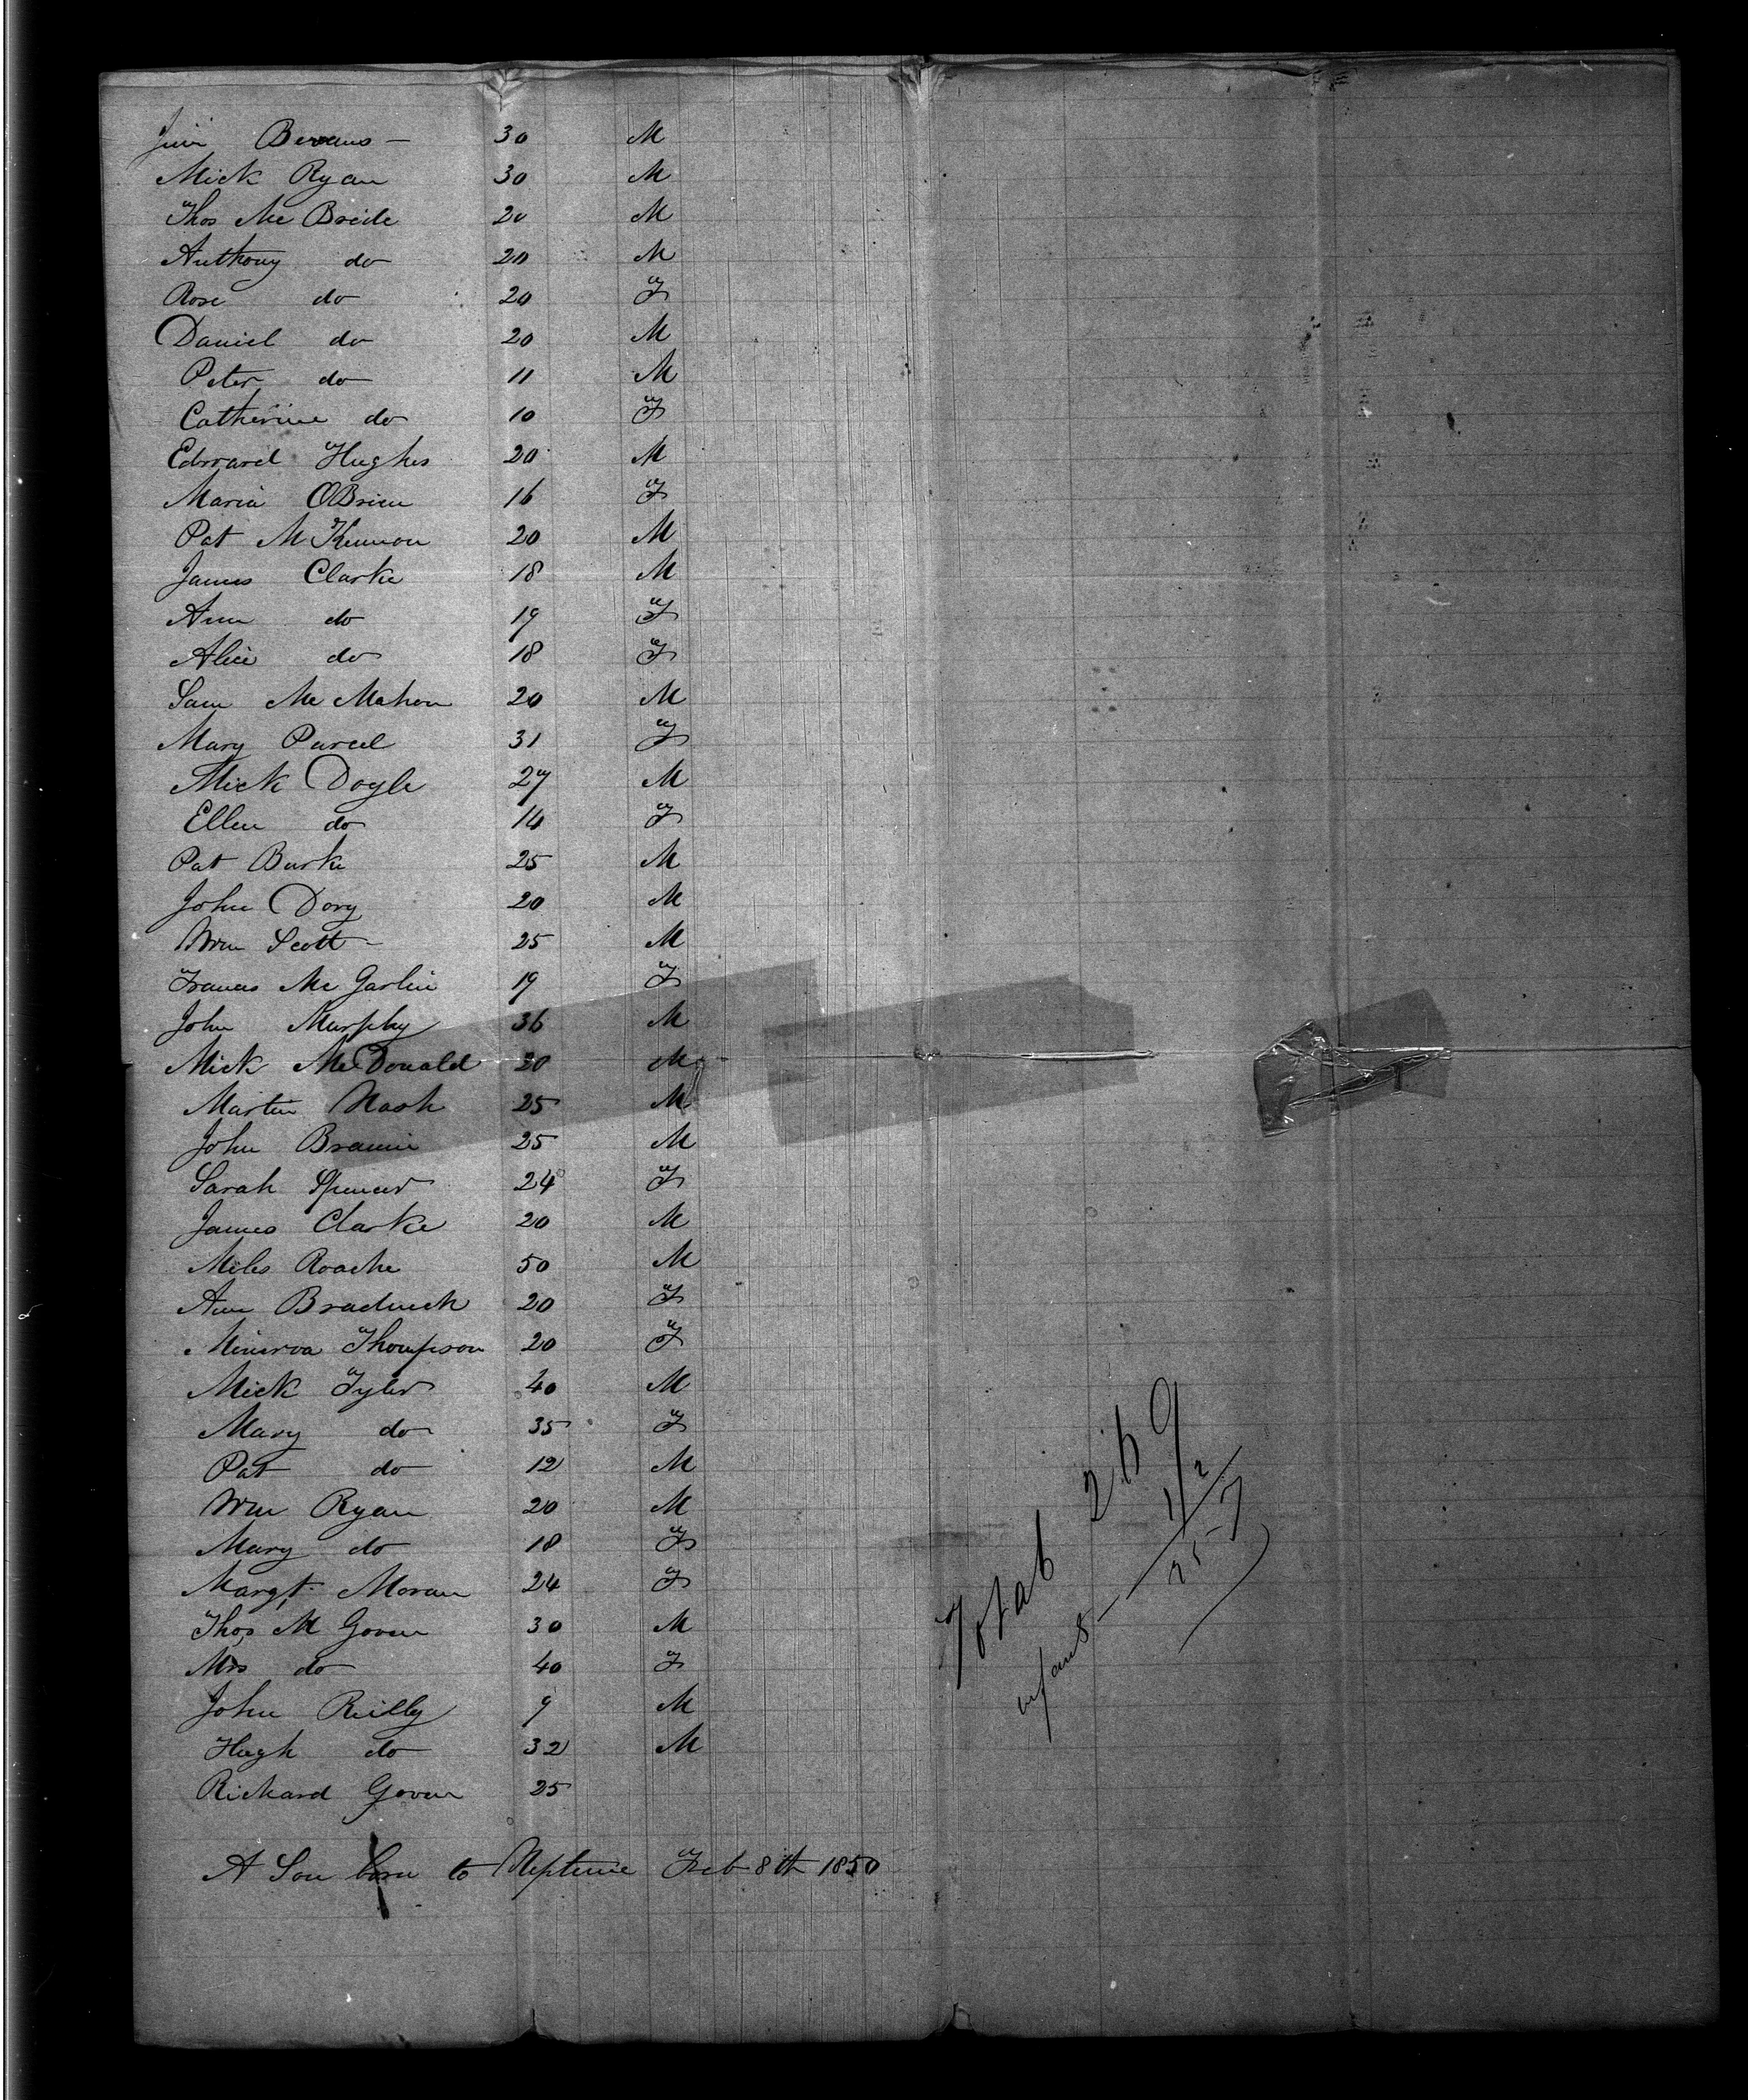 Jim Bevans - 30 M
Mick Ryan 30 M
Thos Mc Bride 20 M
Anthony do 20 M
Rose do 20 F
Daniel do 20 M
Peter do 11 M
Catherine do 10 F
Edward Hughes 20 M
Maria OBrien 16 F
Pat McKennon 20 M
James Clarke 18 M
Ann do 19 F
Alice do 18 F
Sam Mc Mahon 20 M
Mary Purcel 31 F
Mick Doyle 27 M
Ellen do 14 F
Pat Burke 25 M
John Dory 20 M
Wm Scott - 25 M
Frances Mc Garlin 19 F
John Murphy 36 M
Mick McDonald 20 M
Martin Nash 25 M
John Brannin 25 M
Sarah Spencer 24 F
James Clarke 20 M
Miles Roache 50 M
Ann 20 F
Minerva Thompson 20 F
Mick Tyler 40 M
Mary do 35 F
Pat do 12 M
Wm Ryan 20 M
Mary do 18 F
Margt Moran 24 F
Thos M Goven 30 M
Mrs do 40 F
John Reilly 9 M
Hugh do 32 M
Richard Goven 25
A Son born to Neptune Feb 8th 1850
Total 269
infants - 12
257